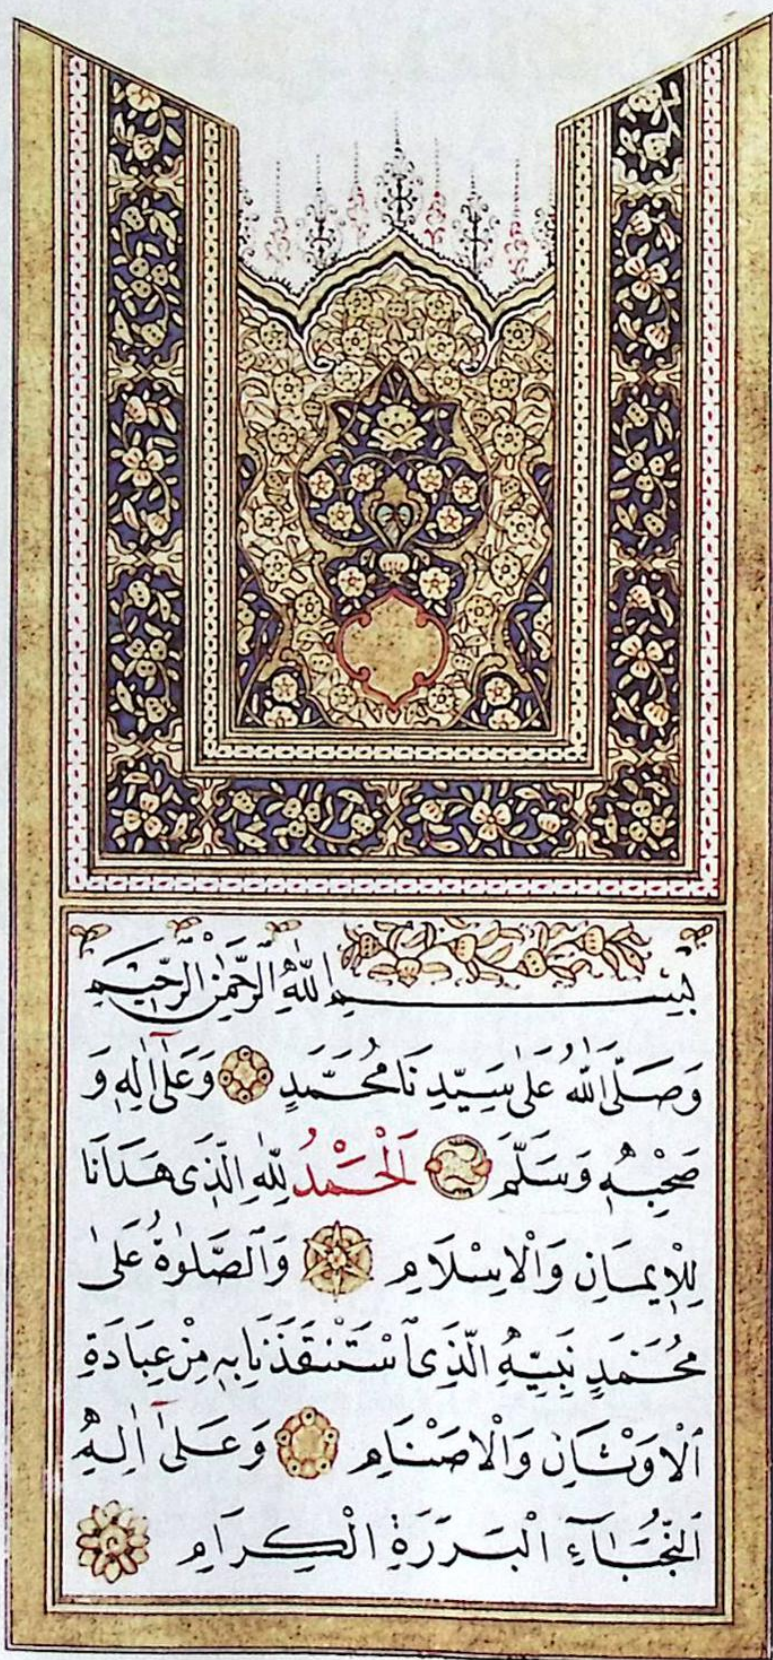 بِسْمِ اللّٰهِ الرَّحْمٰنِ الرَّحِيْمِ
وَصَلَّى اللّٰهُ عَلٰى سَيِّدِنَا مُحَمَّدٍ وَعَلٰٓى اٰلِهٖ وَ
صَحْبِهٖ وَسَلَّمَ اَلْحَمْدُ لِلّٰهِ الَّذِى هَدَانَا
لِلْاِيمَانِ وَالْاِسْلَامِ وَالصَّلٰوةُ عَلٰى
مُحَمَّدٍ نَبِيِّهِ الَّذِى اسْتَنْقَذَنَا بِهٖ مِنْ عِبَادَةِ
الْاَوْثَانِ وَالْاَصْنَامِ وَعَلٰٓى اٰلِهِ
النُّجَبَآءِ الْبَرَرَةِ الْكِرَامِ